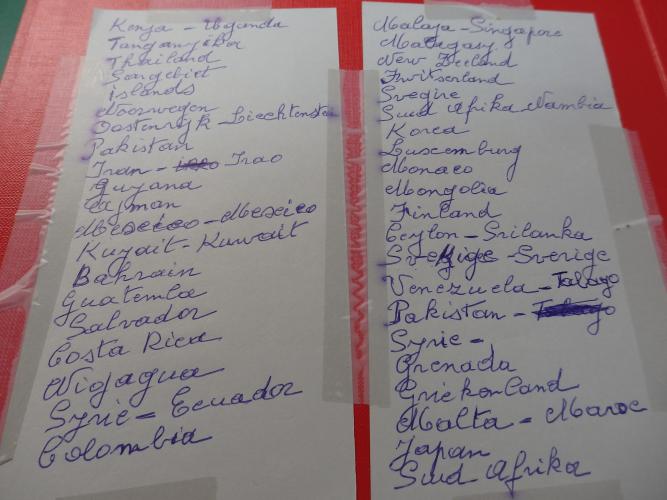 Kenya - Uganda
Tanganyibar
Thailand
Saargebiet
islands
Noorwegen
Oostenryk - Liechtenstein
Pakistan
Iran - Irao
Guyana
Ajman
Mexico - Mexico
Kuyait - Kuwait
Bahrain
Guatemla
Salvador
Costa Rica
Nigjagua
Syrië - Ecuador
Colombia
Malaja - Singapore
Malagasy.8
New Zeeland
Zwitserland
Svegire
Suid Afrika Nambia
Korea
Luxemburg
Monaco
Mongolia
Finland
Ceylon - Srilanka
Sverige - Sverige
Venezuela - Tabago
Pakistan - Tobago
Syrie -
Grenada
Griekenland
Malta - Maroc
Japan
Suid Afrika